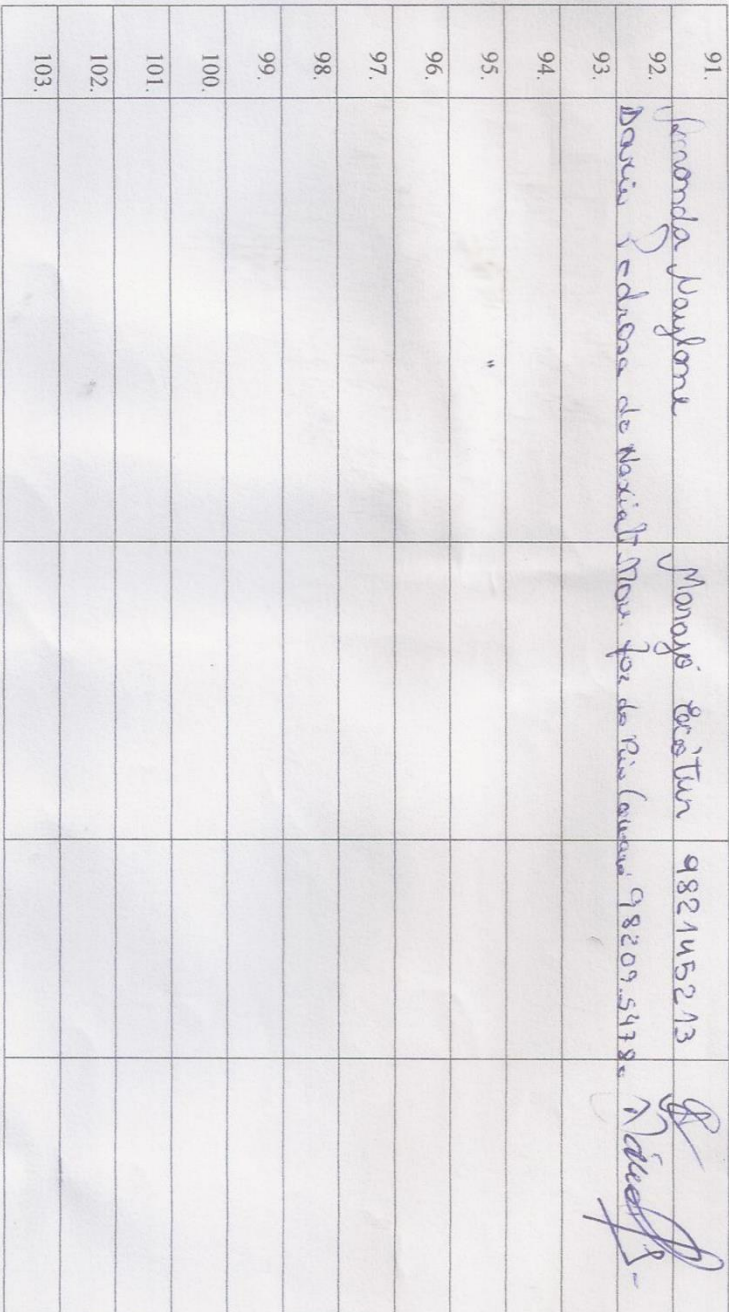 91. Amanda Naylane Marajó Ecótur 982145213
92. Pedrosa do Mov. foz do Rio Camará 98209.5478
93.
94.
95.
96.
97.
98.
99.
100.
101.
102.
103.